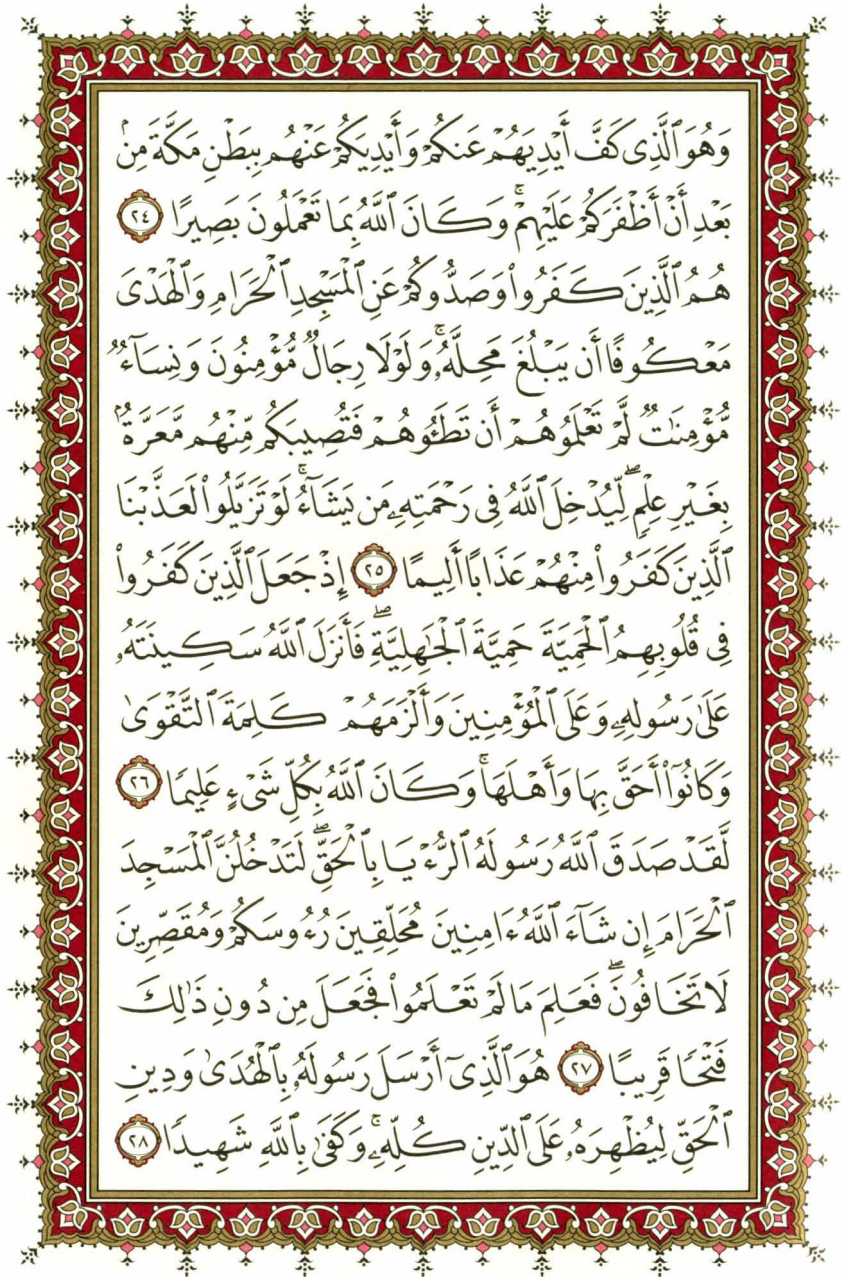 وَهُوَ ٱلَّذِى كَفَّ أَيْدِيَهُمْ عَنكُمْ وَأَيْدِيَكُمْ عَنْهُم بِبَطْنِ مَكَّةَ مِنۢ
بَعْدِ أَنْ أَظْفَرَكُمْ عَلَيْهِمْ ۚ وَكَانَ ٱللَّهُ بِمَا تَعْمَلُونَ بَصِيرًا ٢٤
هُمُ ٱلَّذِينَ كَفَرُوا۟ وَصَدُّوكُمْ عَنِ ٱلْمَسْجِدِ ٱلْحَرَامِ وَٱلْهَدْىَ
مَعْكُوفًا أَن يَبْلُغَ مَحِلَّهُۥ ۚ وَلَوْلَا رِجَالٌ مُّؤْمِنُونَ وَنِسَآءٌ
مُّؤْمِنَـٰتٌ لَّمْ تَعْلَمُوهُمْ أَن تَطَـُٔوهُمْ فَتُصِيبَكُم مِّنْهُم مَّعَرَّةٌۢ
بِغَيْرِ عِلْمٍ ۖ لِّيُدْخِلَ ٱللَّهُ فِى رَحْمَتِهِۦ مَن يَشَآءُ ۚ لَوْ تَزَيَّلُوا۟ لَعَذَّبْنَا
ٱلَّذِينَ كَفَرُوا۟ مِنْهُمْ عَذَابًا أَلِيمًا ٢٥ إِذْ جَعَلَ ٱلَّذِينَ كَفَرُوا۟
فِى قُلُوبِهِمُ ٱلْحَمِيَّةَ حَمِيَّةَ ٱلْجَـٰهِلِيَّةِ ۖ فَأَنزَلَ ٱللَّهُ سَكِينَتَهُۥ
عَلَىٰ رَسُولِهِۦ وَعَلَى ٱلْمُؤْمِنِينَ وَأَلْزَمَهُمْ كَلِمَةَ ٱلتَّقْوَىٰ
وَكَانُوٓا۟ أَحَقَّ بِهَا وَأَهْلَهَا ۚ وَكَانَ ٱللَّهُ بِكُلِّ شَىْءٍ عَلِيمًا ٢٦
لَّقَدْ صَدَقَ ٱللَّهُ رَسُولَهُ ٱلرُّءْيَا بِٱلْحَقِّ ۖ لَتَدْخُلُنَّ ٱلْمَسْجِدَ
ٱلْحَرَامَ إِن شَآءَ ٱللَّهُ ءَامِنِينَ مُحَلِّقِينَ رُءُوسَكُمْ وَمُقَصِّرِينَ
لَا تَخَافُونَ ۖ فَعَلِمَ مَا لَمْ تَعْلَمُوا۟ فَجَعَلَ مِن دُونِ ذَٰلِكَ
فَتْحًا قَرِيبًا ٢٧ هُوَ ٱلَّذِىٓ أَرْسَلَ رَسُولَهُۥ بِٱلْهُدَىٰ وَدِينِ
ٱلْحَقِّ لِيُظْهِرَهُۥ عَلَى ٱلدِّينِ كُلِّهِۦ ۚ وَكَفَىٰ بِٱللَّهِ شَهِيدًا ٢٨